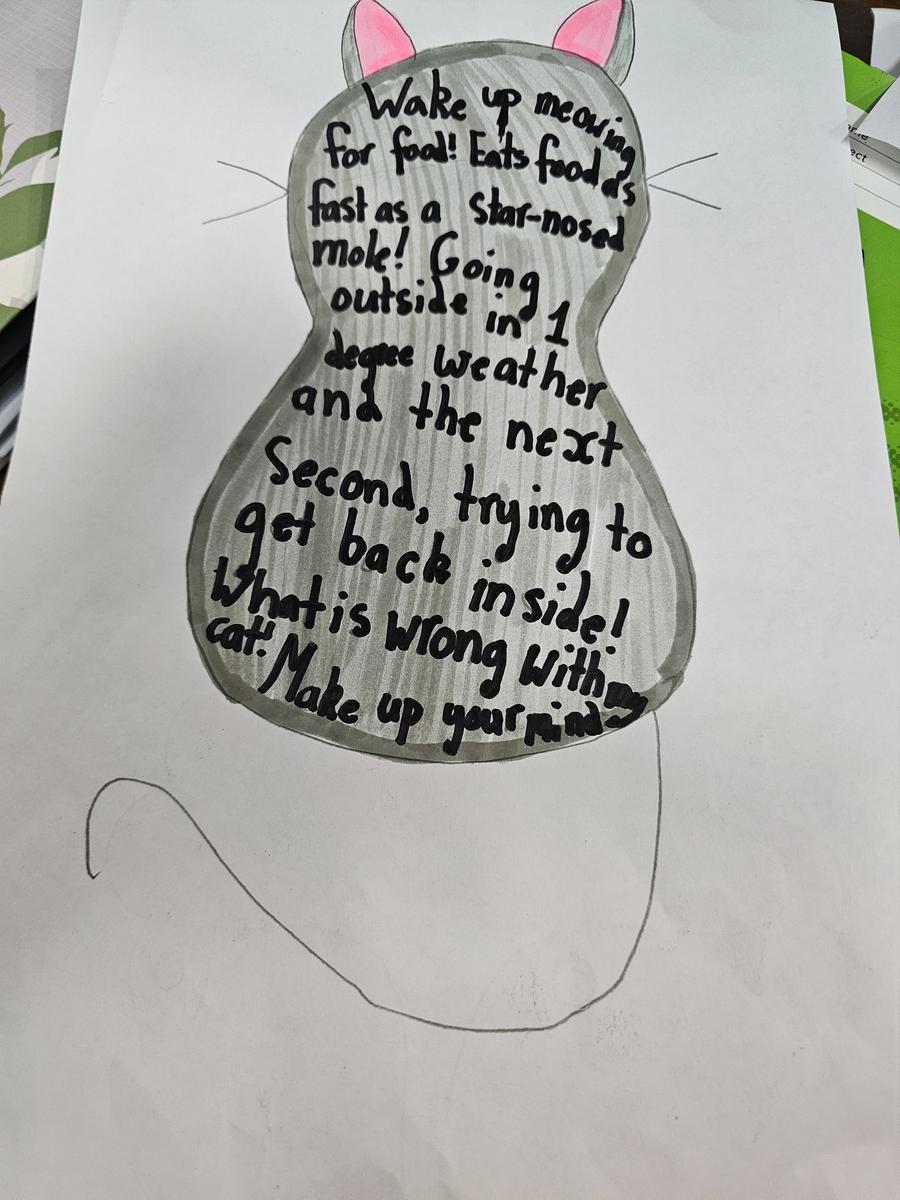 Wake up meowing
for food! Eats food as
fast as a star-nosed
mole! Going
outside in 1
degree weather
and the next
second, trying to
get back inside!
What is wrong with my
cat! Make up your mind
ect